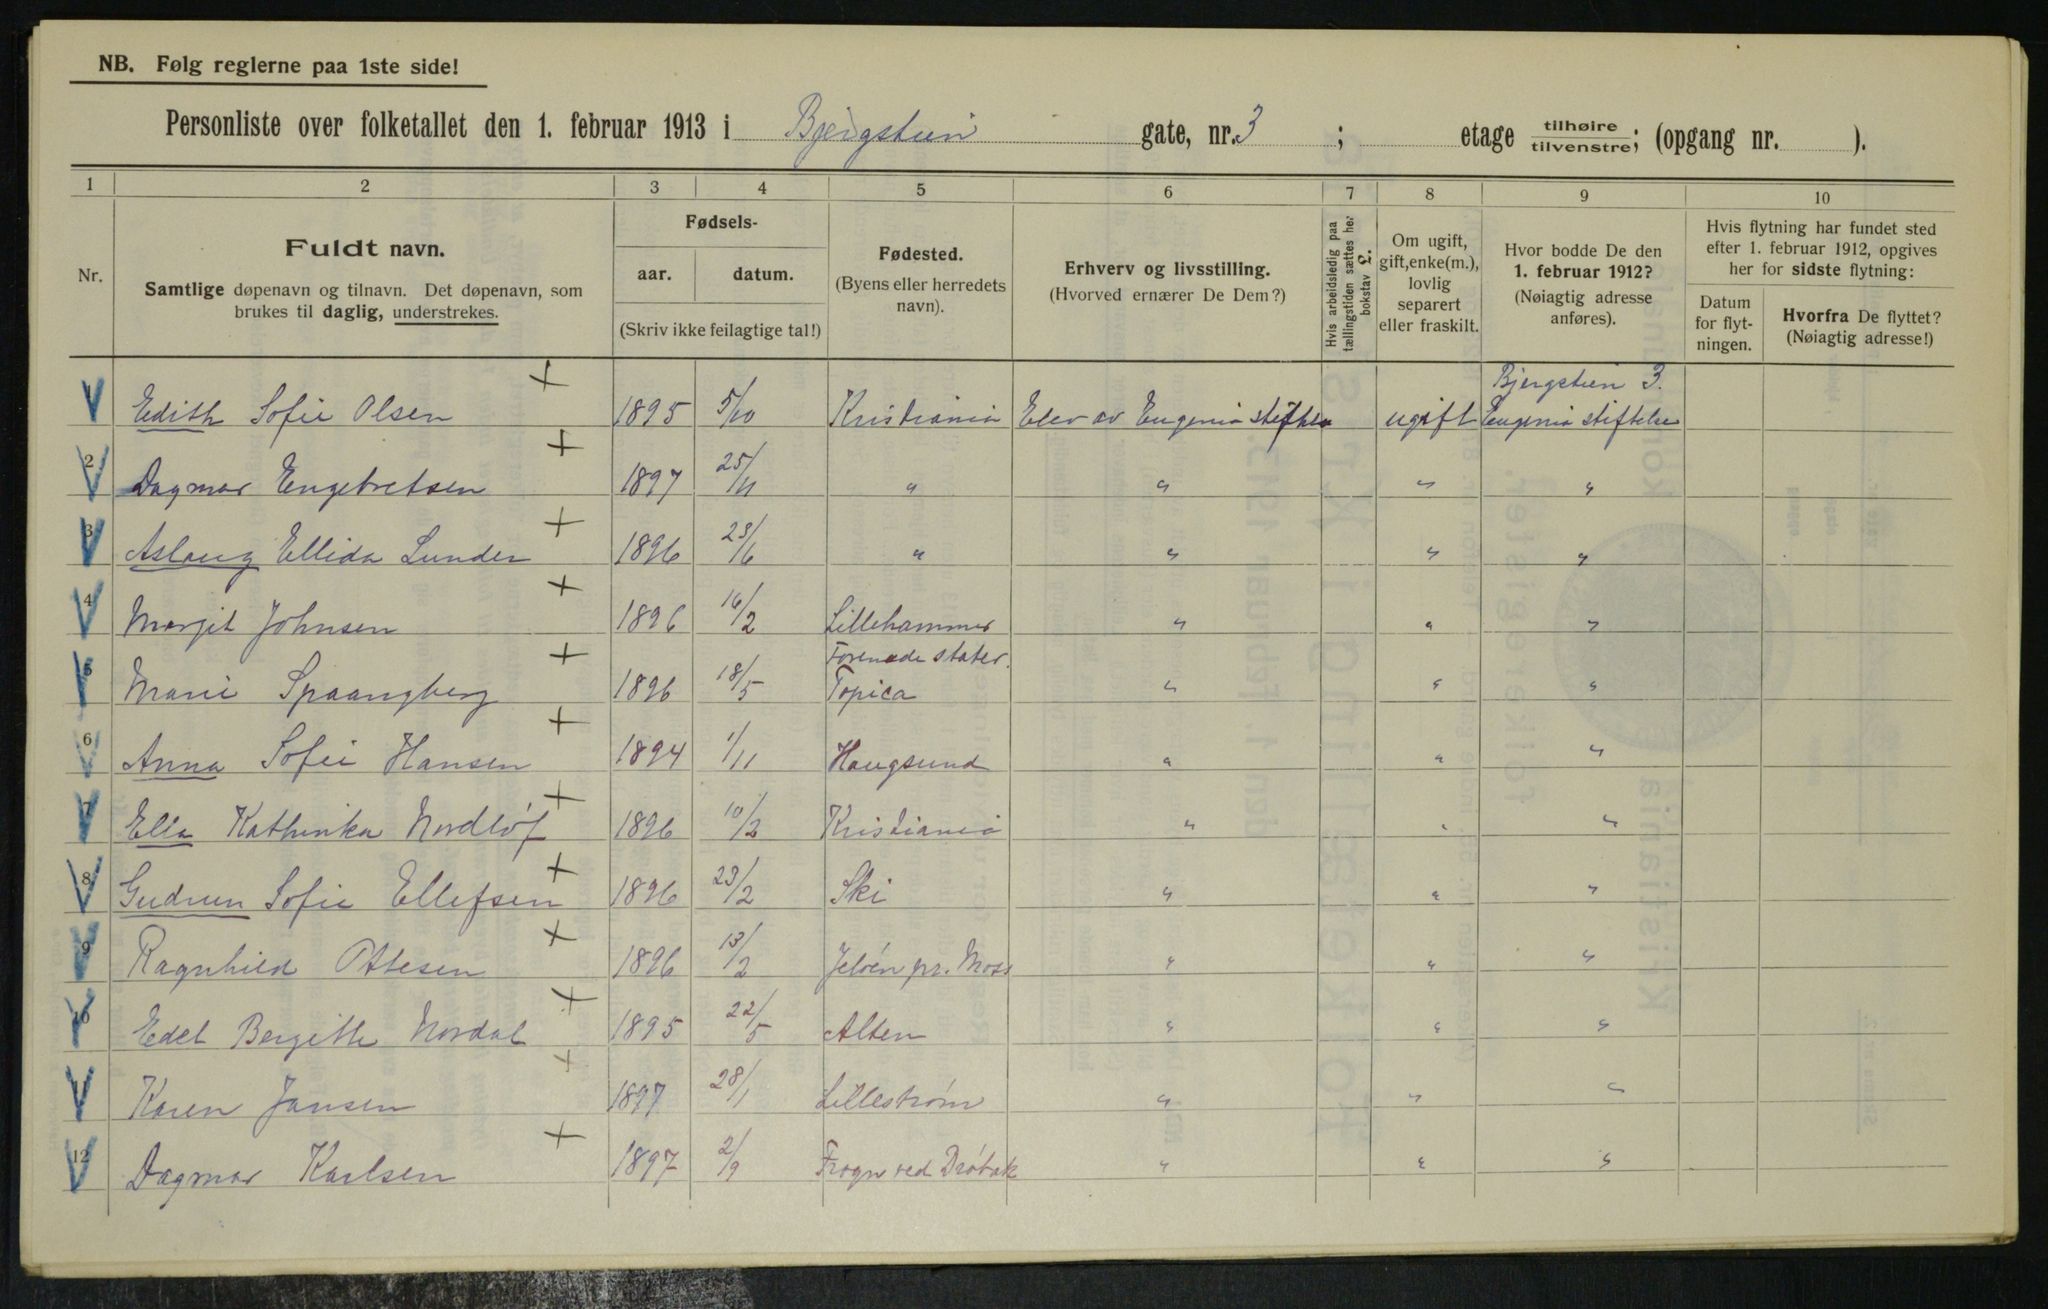 NB. Følg reglerne paa 1ste side!
Personliste over folketallet den 1. februar 1913 i Bjergstien gate, nr. 3 ; etage tilhøire tilvenstre; (opgang nr. ).
1 2 3 4 5 6 7 8 9 10
Nr.
Fuldt navn.
Samtlige døpenavn og tilnavn. Det døpenavn, som
brukes til daglig, understrekes.
Fødsels-
aar. datum.
(Skriv ikke feilagtige tal!)
Fødested.
(Byens eller herredets
navn).
Erhverv og livsstilling.
(Hvorved ernærer De Dem?)
Hvis arbeidsledig paa
tællingstiden sættes her
bokstav L.
Om ugift,
gift, enke(m.),
lovlig
separert
eller fraskilt.
Hvor bodde De den
1. februar 1912?
(Nøiagtig adresse
anføres).
Hvis flytning har fundet sted
efter 1. februar 1912, opgives
her for sidste flytning:
Datum
for flyt-
ningen.
Hvorfra De flyttet?
(Nøiagtig adresse!)
Bjergstien 3.
1 Edith Sofie Olsen 1895 5/10 Kristiania Elev av Eugenia stiftelse ugift Eugenia stiftelse
2 Dagmar Engebretsen 1897 25/11 " " " "
3 Aslaug Ellida Lunder 1896 23/6 " " " "
4 Margit Johnsen 1896 16/2 Lillehammer " " "
Forenede stater.
5 Marie Spaangberg 1896 18/5 Topica " " "
6 Anna Sofie Hansen 1894 1/11 Haugsund " " "
7 Ella Kathinka Nordløf 1896 10/2 Kristiania " " "
8 Gudrun Sofie Ellefsen 1896 23/2 Ski " " "
9 Ragnhild Ottesen 1896 13/2 Jeløen pr. Moss " " "
10 Edel Bergitte Nordal 1895 22/5 Alten " " "
Karen Jansen 1897 28/1 Lillestrøm " " "
12 Dagmar Karlsen 1897 2/9 Frogn ved Drøbak " " "